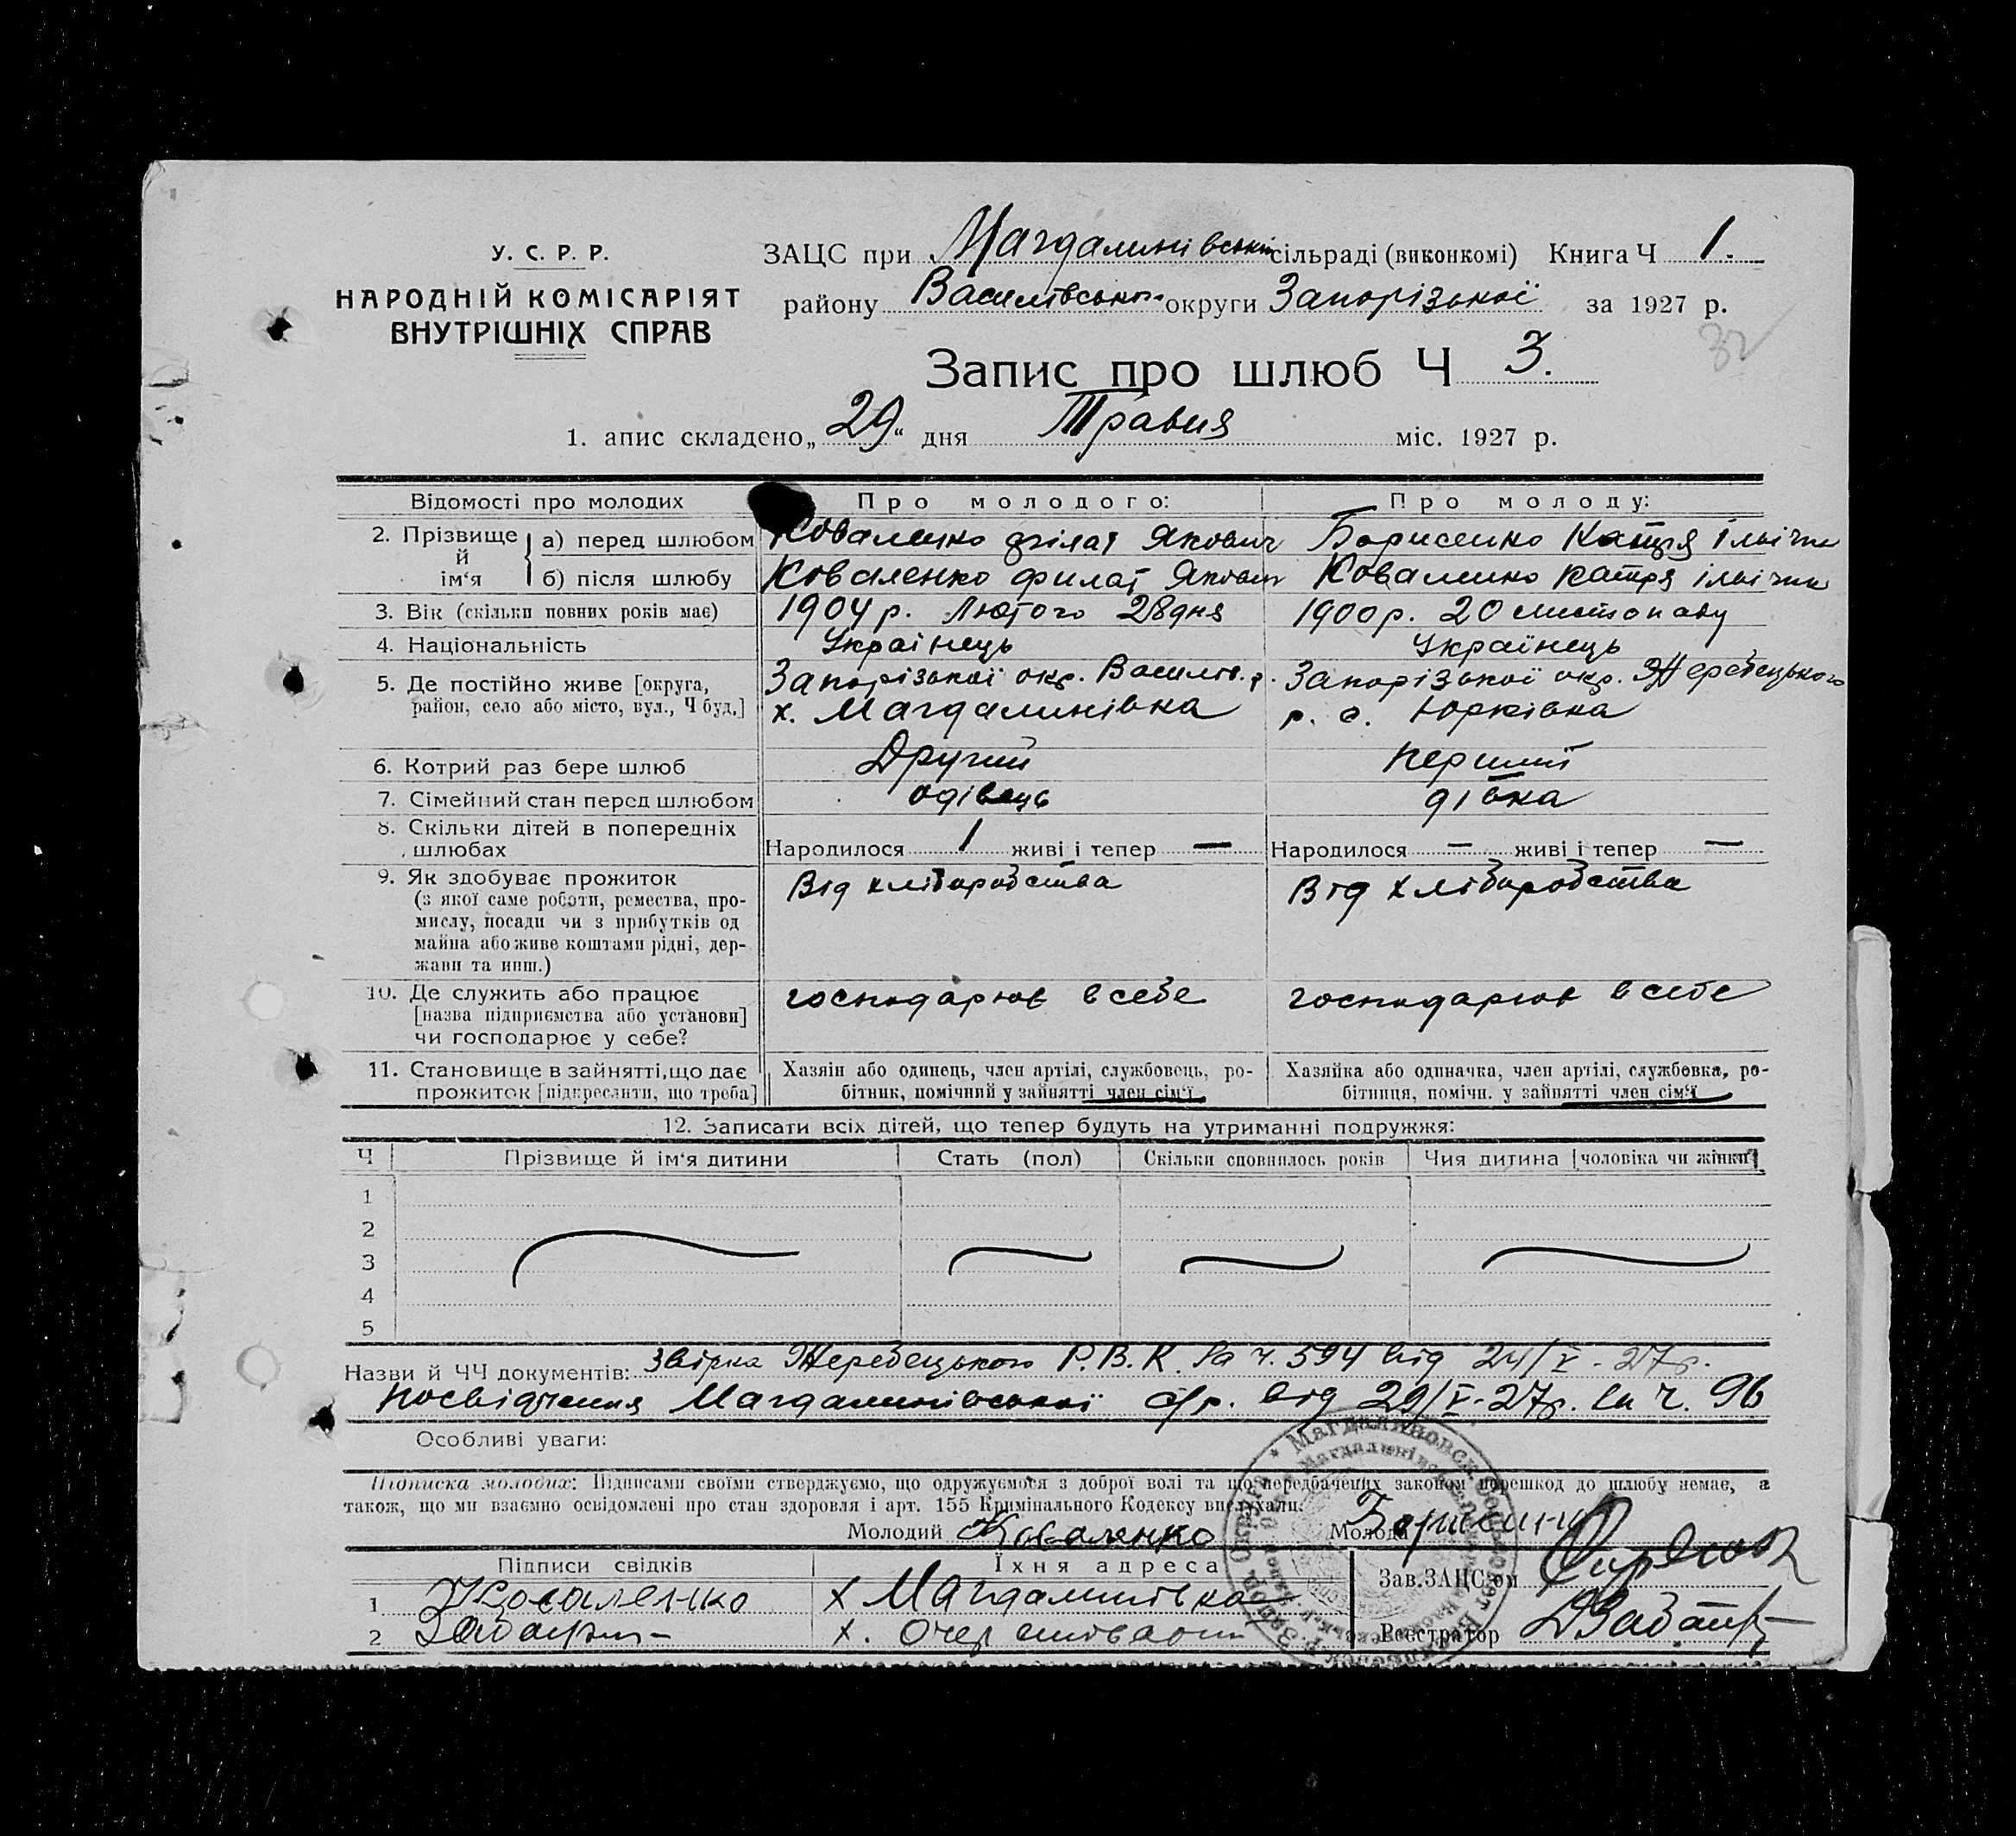 У. С. Р. Р.
НАРОДНІЙ КОМІСАРІЯТ
ВНУТРІШНІХ СПРАВ
ЗАЦС при Магдалинівській сільраді (виконкомі) Книга Ч 1.
району Василівського округи Запорізької за 1927 р.
32
Запис про шлюб Ч 3.
1. апис складено „29“ дня Травня міс. 1927 р.
Відомості про молодих Про молодого: Про молоду:
2. Прізвище й ім‘я
а) перед шлюбом Коваленко філат Якович Борисенко Катря Ільічна
б) після шлюбу Коваленко филат Якович Коваленко Катря ільічна
3. Вік (скільки повних років має) 1904 р. Лютого 28 дня 1900 р. 20 листопаду
4. Національність Українець Українець
5. Де постійно живе [округа, Запорізької окр. Василів. р. Запорізької окр. Жеребецького
район, село або місто, вул., Ч буд.] х. Магдалинівка р. с. Юрківка
6. Котрий раз бере шлюб Другий Перший
7. Сімейний стан перед шлюбом одівець дівка
8. Скільки дітей в попередніх
шлюбах Народилося 1 живі і тепер — Народилося — живі і тепер —
9. Як здобуває прожиток Від хліборобства Від хліборобства
(з якої саме роботи, ремества, про-
мислу, посади чи з прибутків од
майна або живе коштами рідні, дер-
жави та инш.)
10. Де служить або працює господарює в себе господарює в себе
[назва підприємства або установи]
чи господарює у себе?
11. Становище в зайнятті, що дає Хазяін або одинець, член артілі, службовець, ро- Хазяйка або одиначка, член артілі, службовка, ро-
прожиток [підкреслити, що треба] бітник, помічний у зайнятті член сім‘ї бітниця, помічн. у зайнятті член сім‘ї
12. Записати всіх дітей, що тепер будуть на утриманні подружжя:
Ч Прізвище й ім‘я дитини Стать (пол) Скільки сповнилось років Чия дитина [чоловіка чи жінки]
1
2
3
4
5
Назви й ЧЧ документів: Звірка Жеребецького Р.В.К. За ч. 594 від 24/V-27р.
Посвідчення Магдалинівської с/р. від 29/V-27р. За ч. 96
Особливі уваги:
Підписка молодих: Підписами своїми стверджуємо, що одружуємося з доброї волі та що передбачених законом перешкод до шлюбу немає, а
також, що ми взаємно освідомлені про стан здоровля і арт. 155 Кримінального Кодексу вислухали.
Молодий Коваленко Молода Борисенко
Підписи свідків Їхня адреса Зав. ЗАЦС‘ом
1 Коваленко х Магдалинівка
2 х. Реєстратор